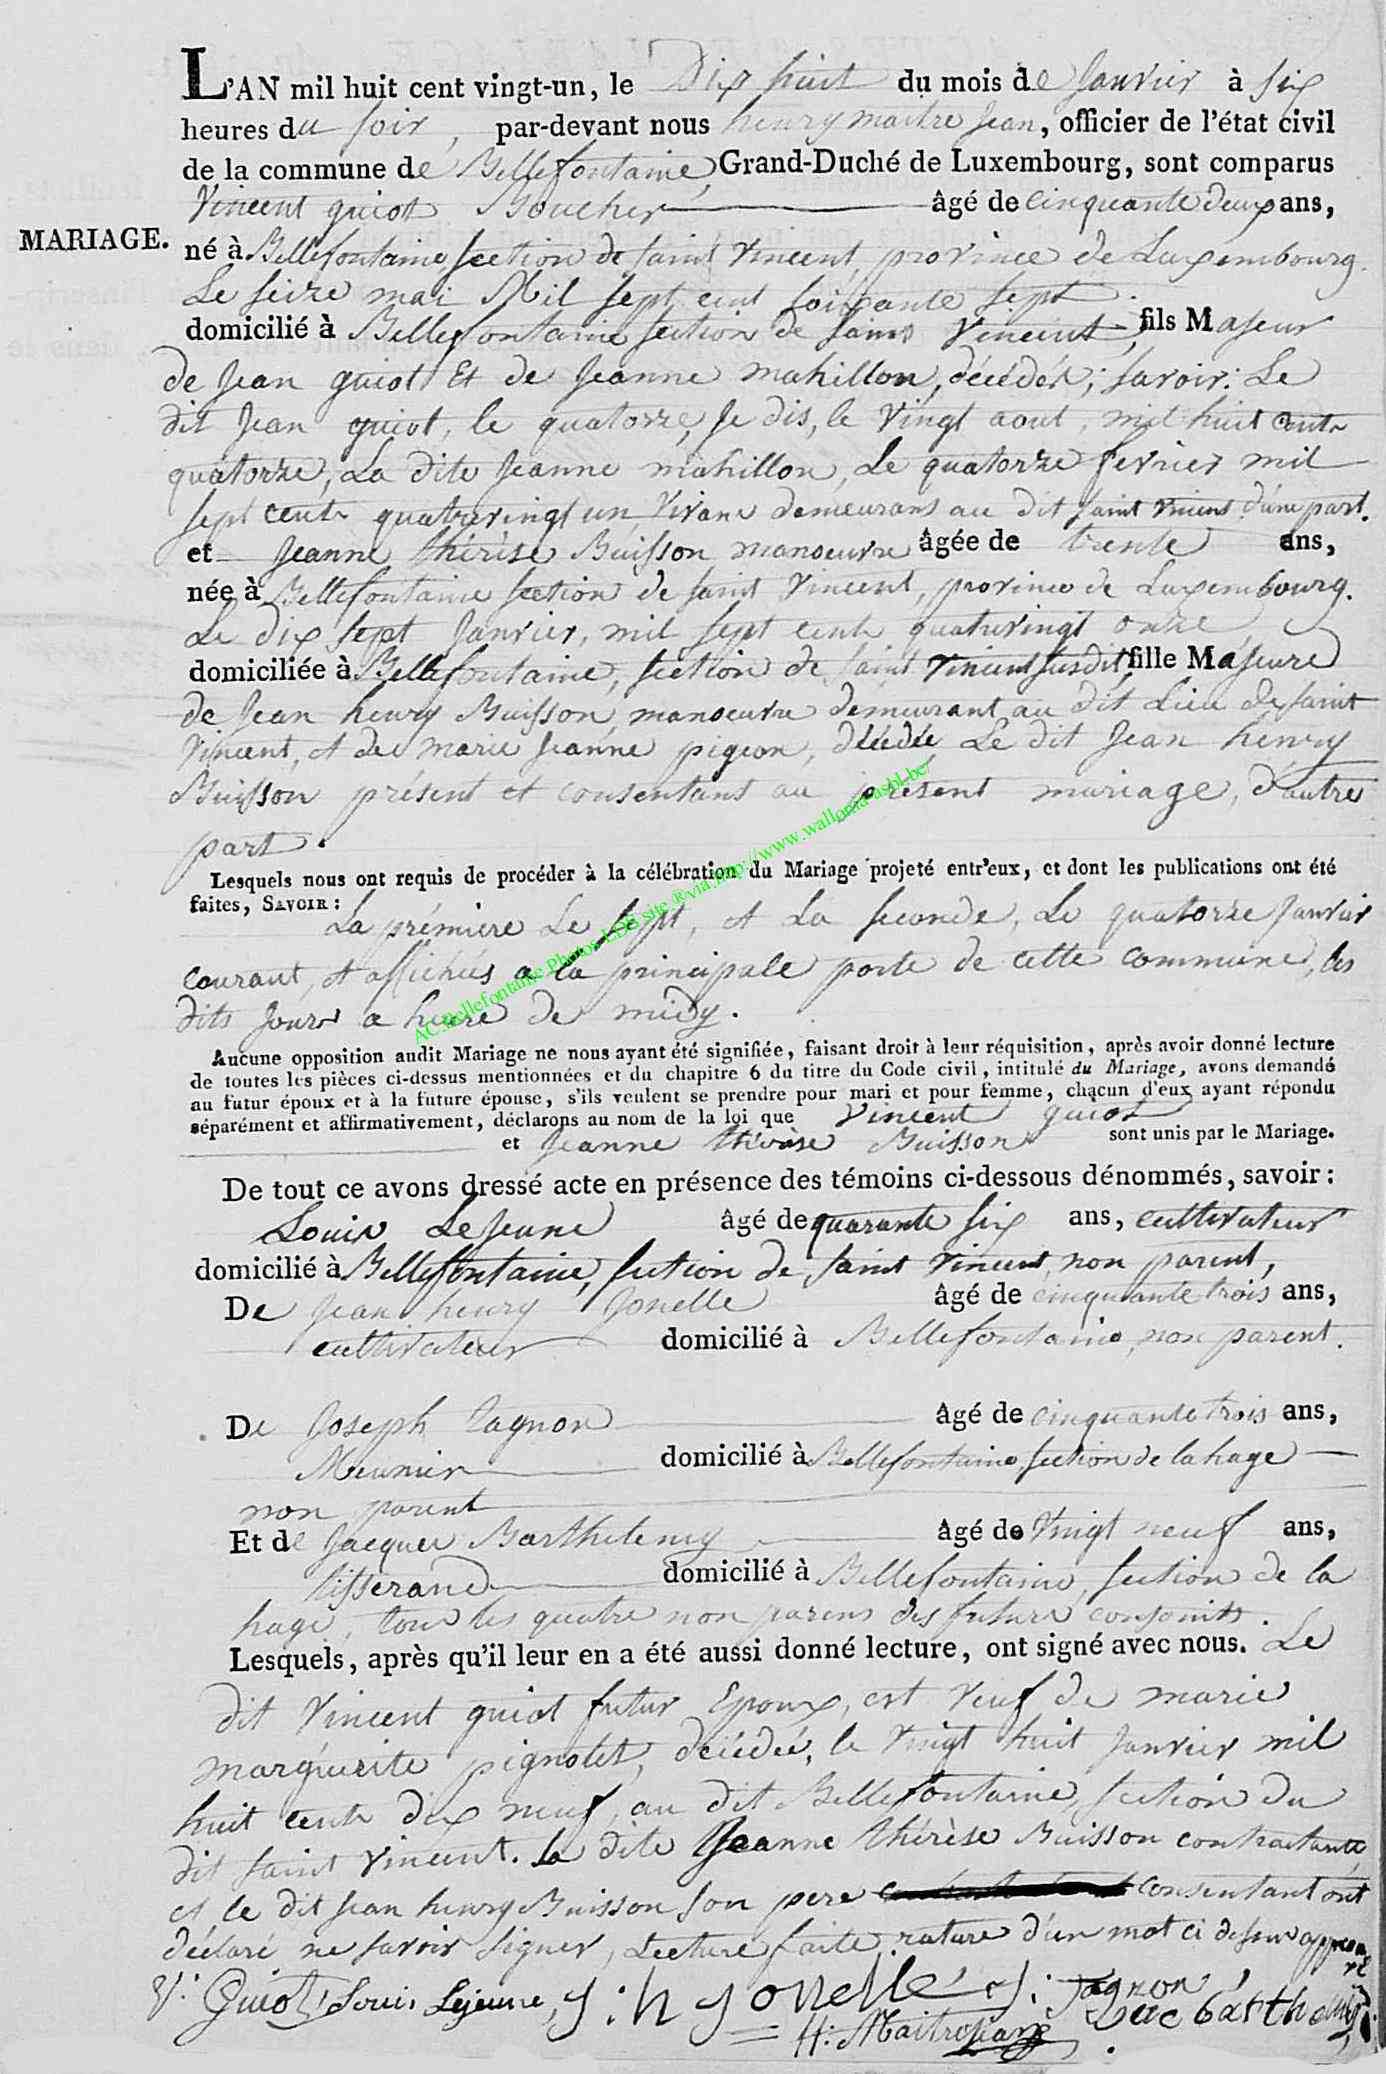 L'AN mil huit cent vingt-un, le Dix huit du mois de Janvier à six
heures du soir, par-devant nous henry maitre Jean, officier de l'état civil
de la commune de Bellefontaine, Grand-Duché de Luxembourg, sont comparus
Vincent guiot Boucher âgé de cinquante deux ans,
MARIAGE.
né à Bellefontaine, section de saint Vincent, province de Luxembourg.
Le seize mai Mil sept cent soixante sept.
domicilié à Bellefontaine section de saint Vincent, fils Majeur
de Jean guiot Et de Jeanne mahillon, décédés; savoir: Le
dit Jean guiot, le quatorze, Je dis, le vingt aout, mil huit cent
quatorze, La dite Jeanne mahillon, Le quatorze fevrier mil
sept cent quatrevingt un, Vivans demeurans au dit saint Vincent d'une part.
et Jeanne thérèse Buisson manoeuvre âgée de trente ans,
née à Bellefontaine section de saint Vincent, province de Luxembourg.
Le dix sept Janvier, mil sept cent quatrevingt onze
domiciliée à Bellefontaine, section de saint Vincent susdit, fille Majeure
de Jean henry Buisson, manoeuvre demeurant au dit Lieu de saint
Vincent, et de marie Jeanne pigeon, décédée Le dit Jean henry
Buisson présent et consentant au présent mariage, d'autre
part.
Lesquels nous ont requis de procéder à la célébration du Mariage projeté entr'eux, et dont les publications ont été
faites, SAVOIR: La prémière Le sept, et La seconde, Le quatorze Janvier
courant, et affichées a la principale porte de cette commune, les
dits Jours a heure de midy.
AC Bellefontaine Photos LDS site ®via http://www.wallonia-asbl.be/
Aucune opposition audit Mariage ne nous ayant été signifiée, faisant droit à leur réquisition, après avoir donné lecture
de toutes les pièces ci-dessus mentionnées et du chapitre 6 du titre du Code civil, intitulé du Mariage, avons demandé
au futur époux et à la future épouse, s'ils veulent se prendre pour mari et pour femme, chacun d'eux ayant répondu
séparément et affirmativement, déclarons au nom de la loi que Vincent guiot
et Jeanne thérèse Buisson sont unis par le Mariage.
De tout ce avons dressé acte en présence des témoins ci-dessous dénommés, savoir:
Louis LeJeune âgé de quarante six ans, cultivateur
domicilié à Bellefontaine, section de saint Vincent, non parent,
De Jean henry Jonelle âgé de cinquante trois ans,
cultivateur domicilié à Bellefontaine, non parent.
De Joseph Tagnon âgé de cinquante trois ans,
Meunier domicilié à Bellefontaine section de la hage
non parent
Et de Jacques Barthelemy âgé de Vingt neuf ans,
tisserand domicilié à Bellefontaine, section de la
hage, tous les quatre non parens des futurs conjoints.
Lesquels, après qu'il leur en a été aussi donné lecture, ont signé avec nous. Le
dit Vincent guiot futur Epoux, est veuf de marie
marguerite pignolet, décédée, le Vingt huit Janvier mil
huit cent dix neuf, au dit Bellefontaine, section du
dit saint Vincent. La dite Jeanne thérèse Buisson contractante
et le dit Jean henry Buisson son pere consentant ont
déclaré ne savoir signer, Lecture faite. rature d'un mot ci dessus approu
vé
V. Guiot Louis Lejeune, J: h Jonelle J: Tagnon,
Jac barthelemy
H: Maitrejean